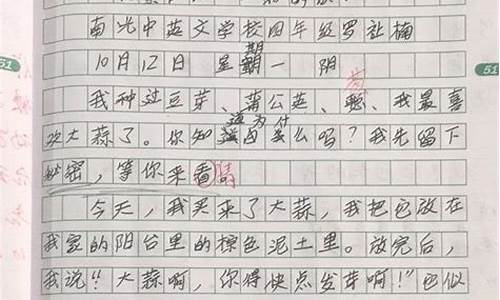 南光中英文学校四年经罗祉楠
10月12日 星期一 阴
我种过豆芽、蒲公英、聪、我最喜
欢大蒜了。你知道为什么吗?我先留下
秘密,等你来看。猜
今天,我买来了大蒜,我把它放在
我家的阳台里的棕色泥土里。放完后,
我说“大蒜啊,你得快点发芽啊!”它似
51